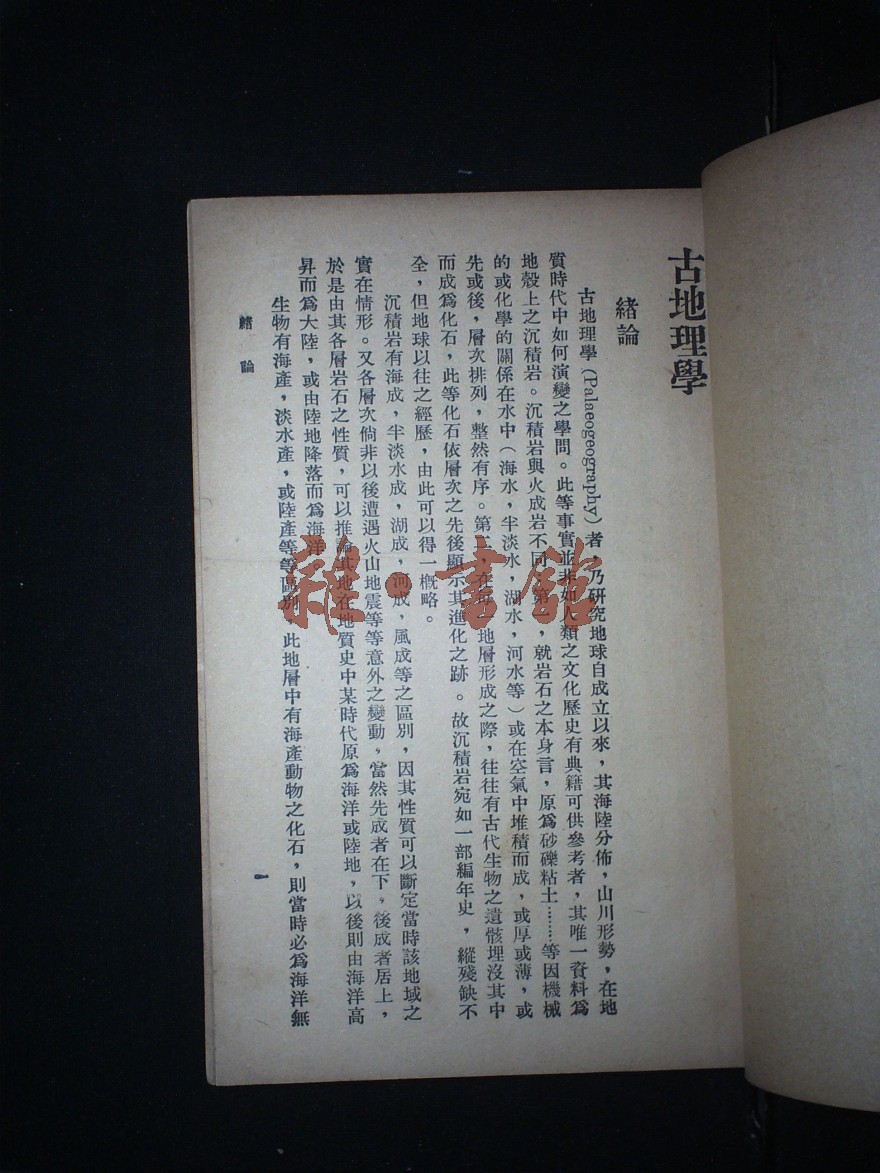 古地理學
緒論
古地理學（Palaeogeography）者，乃研究地球自成立以來，其海陸分佈，山川形勢，在地
質時代中如何演變之學問。此等事實並非如人類之文化歷史有典籍可供參考者，其唯一資料爲
地殼上之沉積岩。沉積岩與火成岩不同，第一，就岩石之本身言，原爲砂礫粘土………等因機械
的或化學的關係在水中（海水，半淡水，湖水，河水等）或在空氣中堆積而成，或厚或薄，或
先或後，層次排列，整然有序。第二，在每一地層形成之際，往往有古代生物之遺骸埋沒其中
而成爲化石，此等化石依層次之先後顯示其進化之跡。故沉積岩宛如一部編年史，縱殘缺不
全，但地球以往之經歷，由此可以得一概略。
沉積岩有海成，半淡水成，湖成，河成，風成等之區別，因其性質可以斷定當時該地域之
實在情形。又各層次倘非以後遭遇火山地震等等意外之變動，當然先成者在下，後成者居上，
於是由其各層岩石之性質，可以推論其地在地質史中某時代原爲海洋或陸地，以後則由海洋高
昇而爲大陸，或由陸地降落而爲海洋。
生物有海產，淡水產，或陸產等等區別，此地層中有海產動物之化石，則當時必爲海洋無
緒論
一
雜·書館